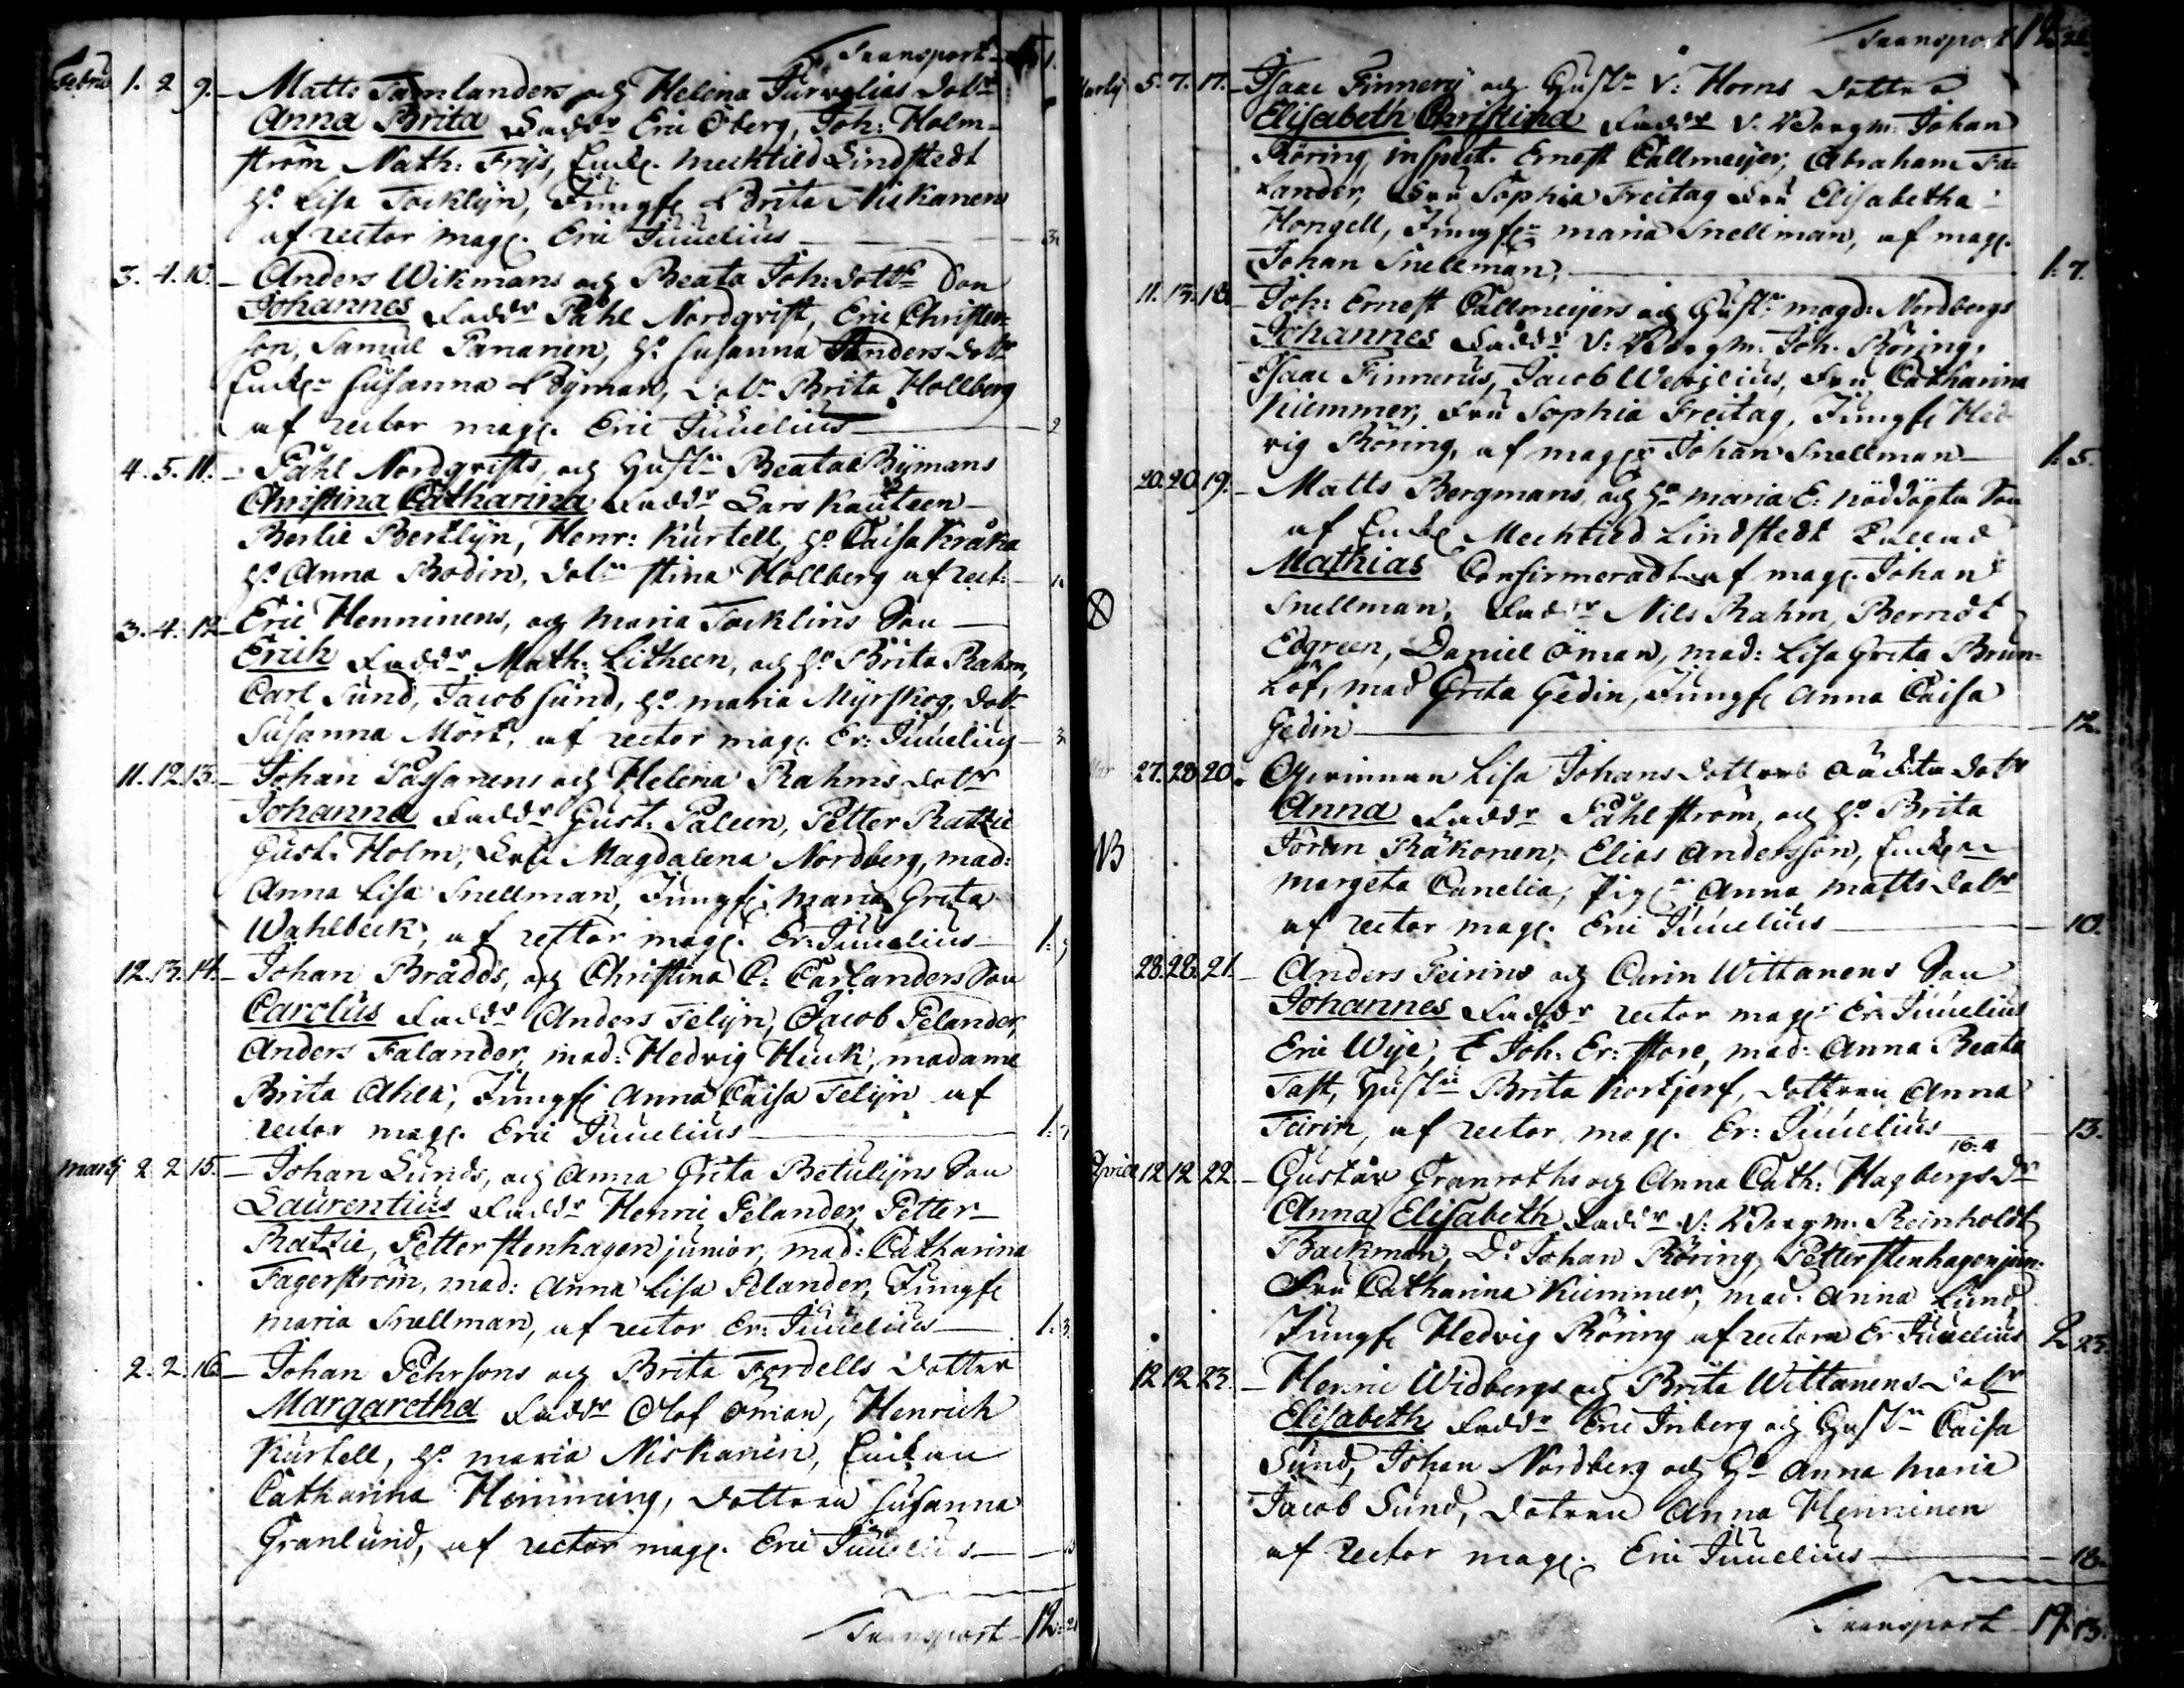 Transport
Febru 1. 2 9. Matts Tamlanders och Helena Turvelias dotr
Anna Brita Faddr Eric Öberg, Joh: Holm=
ström Nath: Frijs, Enck. Mecktild Lindstedt
Ho Lisa Tocklijn, Jungf. Brita Niskanen
af rector mag. Eric Juuelius 3
3. 4. 10. Anders Wikmans och Beata Joh: dottr Son
Johannes Faddr Påhl Nordqvist, Eric Christer=
son, Samuel Pananen, Ho Susanna Anders dotr
Enck. Susanna Byman, dotn Brita Hollberg
af rector mag. Eric Juuelius 2
4. 5. 11. Påhl Nordqvists, och Hustr Beatae Bymans
Christina Catharina Faddr Lars Kauteen
Berlie Bertlijn, Henr: Kurtell, Ho Caisa Kråka
Ho Anna Bodin, dotn Stina Hollberg af rect.
3. 4. 12 Eric Henninens, och Maria Tocklins Son
Erich Faddr Math: Litheen, och Ho Brita Rahm,
Carl Sund, Jacob Sund, Ho Maria Myrskog, dotr
Susanna Mört, af rector mag. Er: Juuelius 3
11. 12. 13. Johan Passanens och Helena Rahms dotr
Johanna Faddr Gust: Paleen, Petter Ratzie
Gust: Holm, Fru Magdalena Nordberg, mad:
Anna Lisa Snellman, Jungf: Maria Greta
Wahlbeck, af rector mag. Er: Juuelius 1:
12. 13. 14. Johan Brådds, och Christina C: Carlanders Son
Carolus Faddr Anders Telijn, Jacob Pelander,
Anders Falander, mad: Hedvig Huck, madame
Brita Ahla, Jungf. Anna Caisa Telijn af
rector mag. Eric Juuelius 1:
martij 2 2 15. Johan Lunds, och Anna Greta Betulijns Son
Laurentius Faddr Henric Pelander, Petter
Ratzie, Petter Stenhagen junior, mad: Catharina
Fagerström, mad: Anna Lisa Pelander, Jungf.
Maria Snellman, af rector Er: Juuelius 1: 3
2. 2. 16. Johan Pehrsons och Brita Fordells dotter
Margaretha Faddr Olof Öman, Henrich
Kurtell, Ho Maria Niskanen, Enckan
Catharina Hemming, dottren Susanna
Granlund, af rector mag. Eric Juuelius
Transport 12:
Transport 12
Martij 5. 7. 17. Isaac Finnerij och Hustr V: Horns dotter
Elisabeth Christina Faddr V. Borgm. Johan
Röring, inspect. Ernest Callmeijer, Abraham Fa=
lander, Fru Sophia Freitag Fru Elisabetha
Hongell, Jungf. Maria Snellman, af mag.
Johan Snellman, 1: 7.
11. 13. 18 Joh: Ernest Callmeijers och Hustr Magd: Nordbergs
Johannes Faddr V: Borgm. Joh. Röring,
Isaac Finnerus, Jacob Wetzilius, Fru Catharina
Kiemmer, Fru Sophia Freitag, Jungf Hed
vig Röring, af mag. Johan Snellman 1. 5.
20. 20. 19. Matts Bergmans, och Ho Maria E: nöddöpta Son
af Enck. Mechtild Lindstedt
Mathias Confirmeradt af mag. Johan
Snellman, Faddr Nils Rahm, Berndt
Edgreen, Daniel Öman, mad: Lisa Greta Brun=
löf, mad Greta Gedin, Jungf Anna Caisa
Gedin 12.
27. 28. 20. Qvinnan Lisa Johans dotters oäckta dotr
NB
Anna Faddr Påhl ström, och Ho Brita
Jören Räkonen, Elias Andersson, Enckan
Margeta Canelia, Pig. Anna Matts dotr
af rector mag. Eric Juuelius 10.
28. 28. 21. Anders Teirins och Carin Wittanens Son
Johannes Faddr rector mag. Er: Juuelius
Eric Wije, Joh. Er: Store, mad: Anna Beata
Tast, Hustr Brita Kortjerf, dottren Anna
Teirin, af rector mag. Er: Juuelius 13.
16: 4
April 12 12 22. Gustav Granroths och Anna Cath: Hagbergs dr
Anna Elisabeth Faddr V: Borgm. Reinholdt
Backman, Do Johan Röring, Petter Stenhagen jun:
Fru Catharina Kiemmer, mad. Anna Lund,
Jungf Hedvig Röring af rectorn Er Juuelius 2 23
12 12 23. Henric Widbergs och Brita Wittanens dotr
Elisabeth Faddr Eric Inberg och Hustr Caisa
Sund, Johan Nordberg och Ho Anna Maria
Jacob Sund, dotren Anna Henninen
af rector mag. Eric Juuelius 18.
Transport 19. 13.